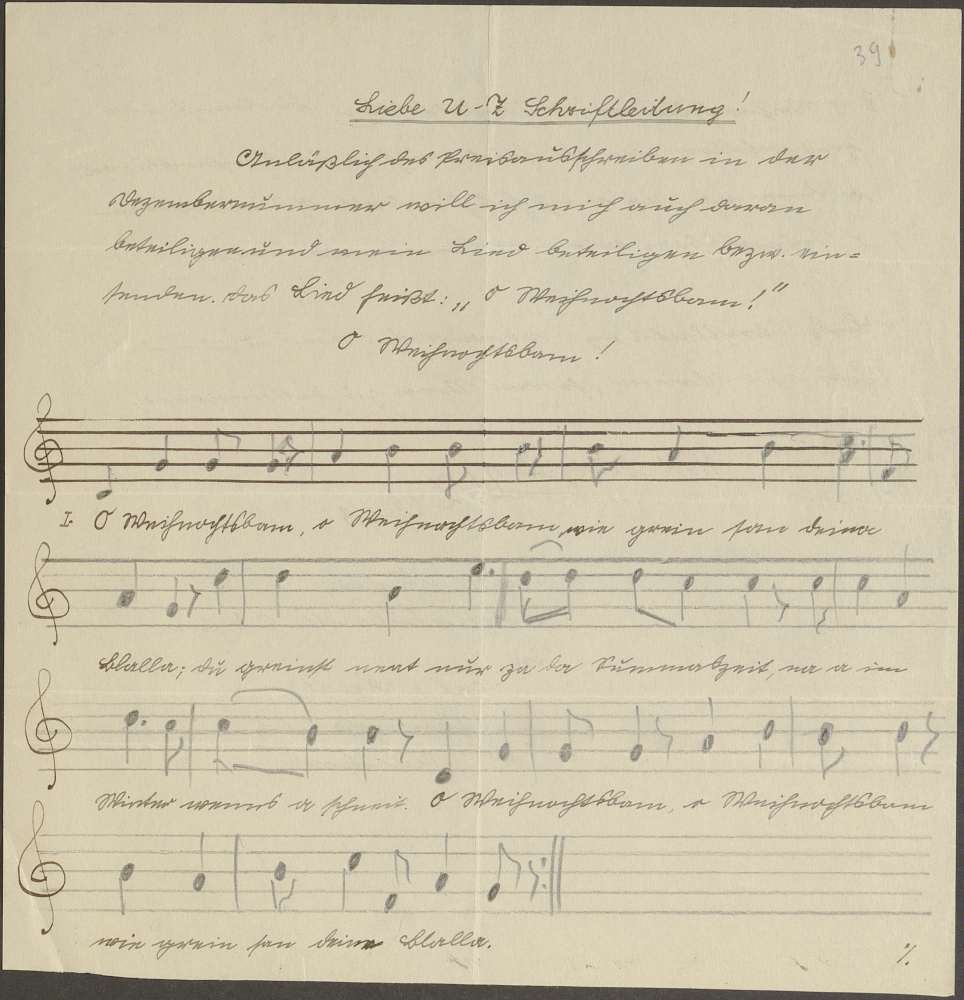 39
Liebe U-Z Schriftleitung!
Anläßlich des Preisausschreiben in der
Dezembernummer will ich mich auch daran
beteiligen und mein Lied beteiligen bezw. ein=
senden. Das Lied heißt: „O Weihnochtsbam!"
O Weihnochtsbam!
I. O Weihnochtsbam, o Weihnochtsbam, wie grein san deina
Blalla; du greinst neat nur za da Summaszeit, na a im
Winter wenns a schneit. O Weihnochtsbam, o Weihnochtsbam
wie grein san deine Blalla.
%.